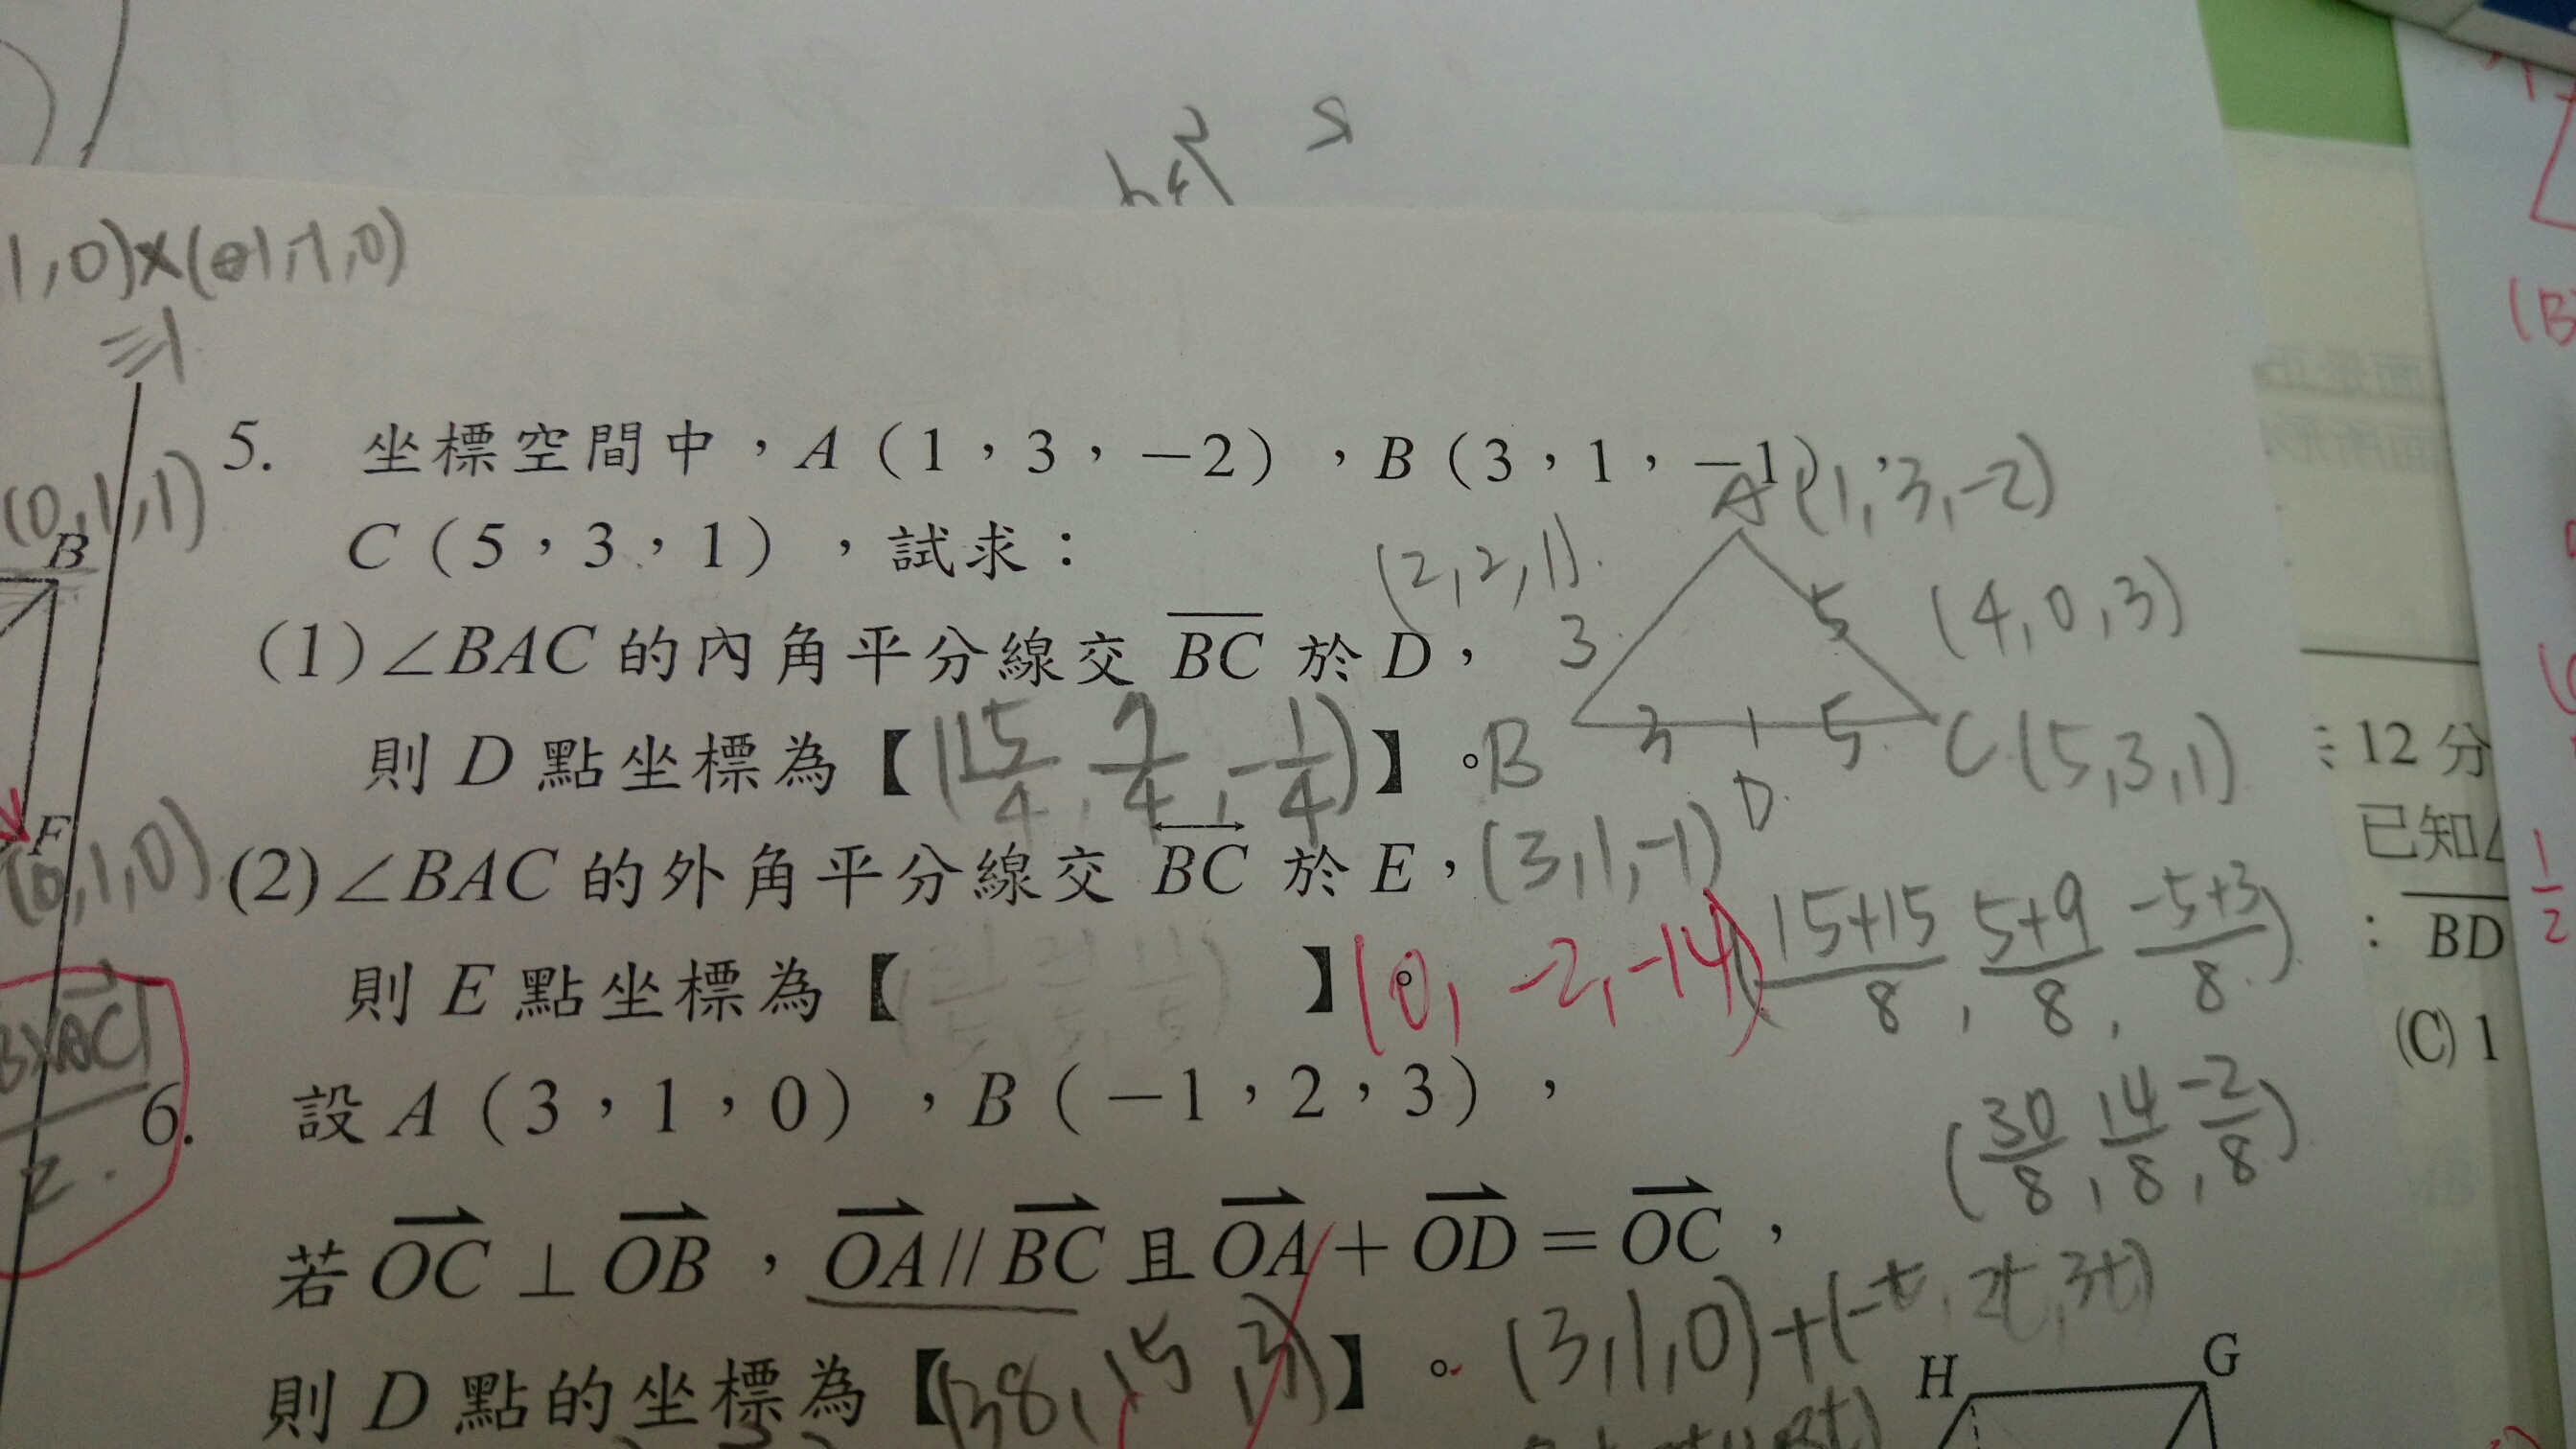 1,0)×(-1,-1,0)
(0,1,1)
B
F
(0,1,0)
5. 坐標空間中，A（1，3，−2），B（3，1，−1），
C（5，3，1），試求：
(1)∠BAC 的內角平分線交 BC 於 D，
則 D 點坐標為【(15/4, 7/4, -1/4)】。
(2)∠BAC 的外角平分線交 BC 於 E，
則 E 點坐標為【 】。
(0, -2, -14)
A(1,3,-2)
(2,2,1)
(4,0,3)
3
5
B
3
5
C(5,3,1)
D
(3,1,-1)
(15+15/8, 5+9/8, -5+3/8)
(30/8, 14/8, -2/8)
6. 設 A（3，1，0），B（−1，2，3），
若 OC ⊥ OB，OA // BC 且 OA + OD = OC，
則 D 點的坐標為【 】。
(3,1,0)+(-t, 2t, 3t)
H
G
12 分
已知∠
: BD
(C) 1
1/2